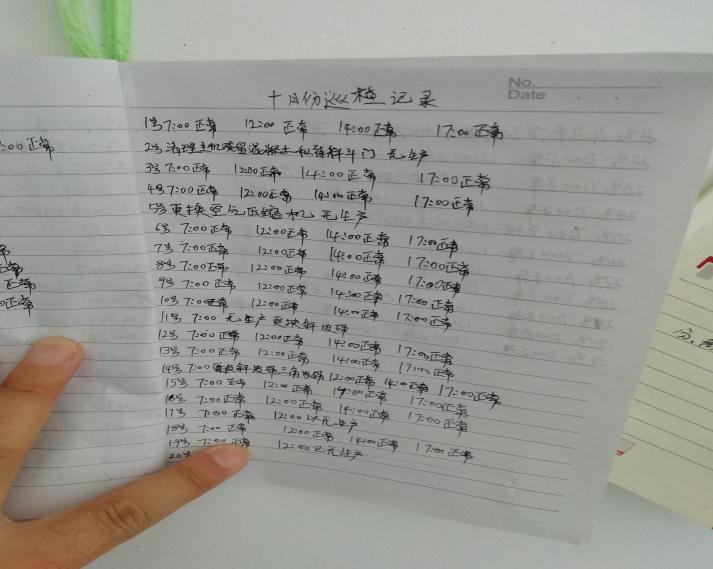 :00正常
No.
Date
十月份巡检记录
1号7:00正常 12:00正常 14:00正常 17:00正常
2号清理主机残留混凝土和待料斗门 无生产
3号7:00正常 12:00正常 14:00正常 17:00正常
4号7:00正常 12:00正常 14:00正常 17:00正常
5号更换空气压缩机无生产
6号 7:00正常 12:00正常 14:00正常 17:00正常
7号 7:00正常 12:00正常 14:00正常 17:00正常
8号 7:00正常 12:00正常 14:00正常 17:00正常
9号 7:00正常 12:00正常 14:00正常 17:00正常
10号 7:00正常 12:00正常 14:00正常 17:00正常
11号 7:00 无生产 更换斜皮
12号 7:00正常 12:00正常 14:00正常 17:00正常
13号 7:00正常 12:00正常 14:00正常 17:00正常
14号 7:00 斜皮 三角 12:00正常 14:00正常 17:00正常
15号 7:00正常 12:00正常 14:00正常 17:00正常
16号 7:00正常 12:00正常 14:00正常 17:00正常
17号 7:00正常 12:00以无生产
18号 7:00正常 12:00正常 14:00正常 17:00正常
19号 7:00正常 12:00已无生产
20号